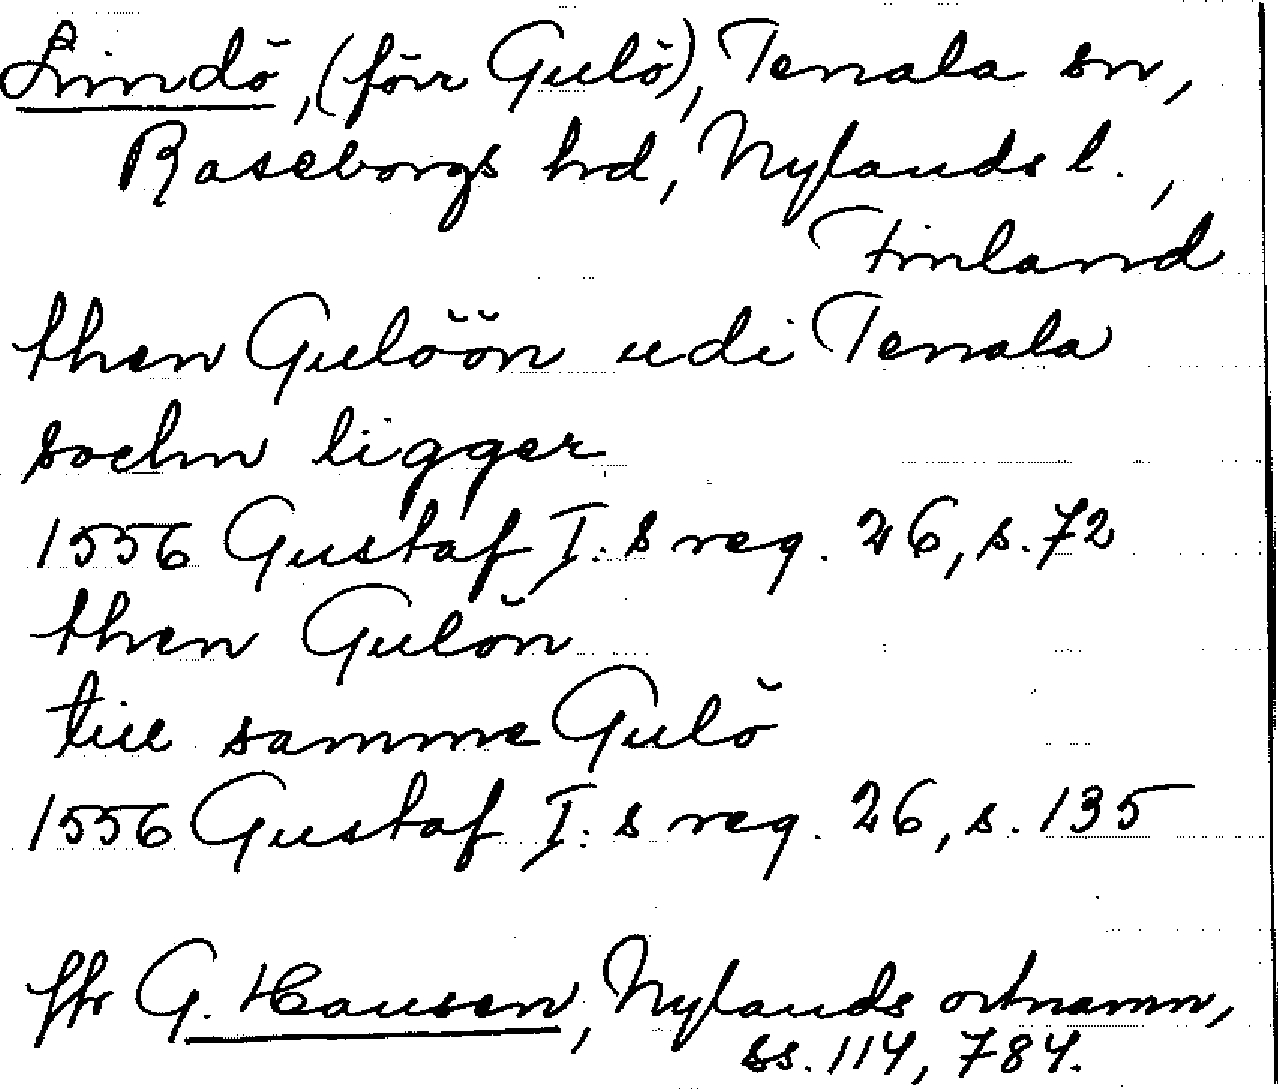 Lindö, (förr Gulö), Tenala sn,
Raseborgs hrd, Nylands l.,
Finland
then Gulöön udi Tenala
sochn ligger
1556 Gustaf I:s reg. 26, s. 72
then Gulön
till samme Gulö
1556 Gustaf I:s reg. 26, s. 135
jfr G. Hausen, Nylands ortnamn,
ss. 114, 784.